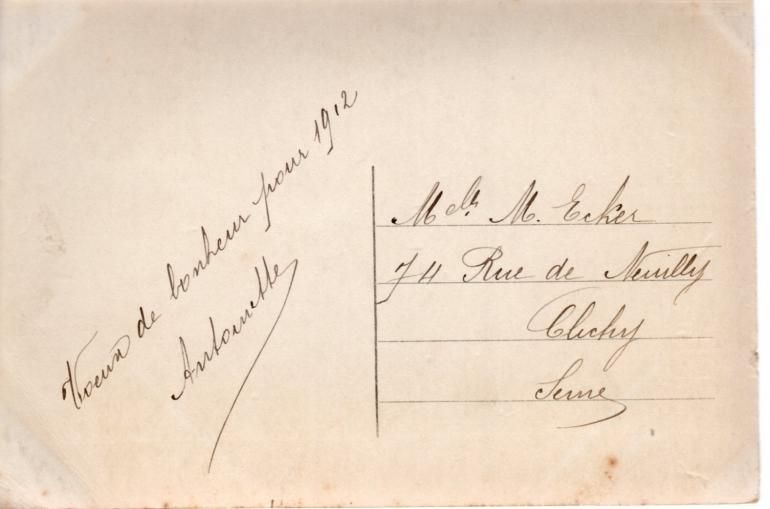 Voeux de bonheur pour 1912
Antoinette
Melle M. Ecker
74 Rue de Neuilly
Clichy
Seine